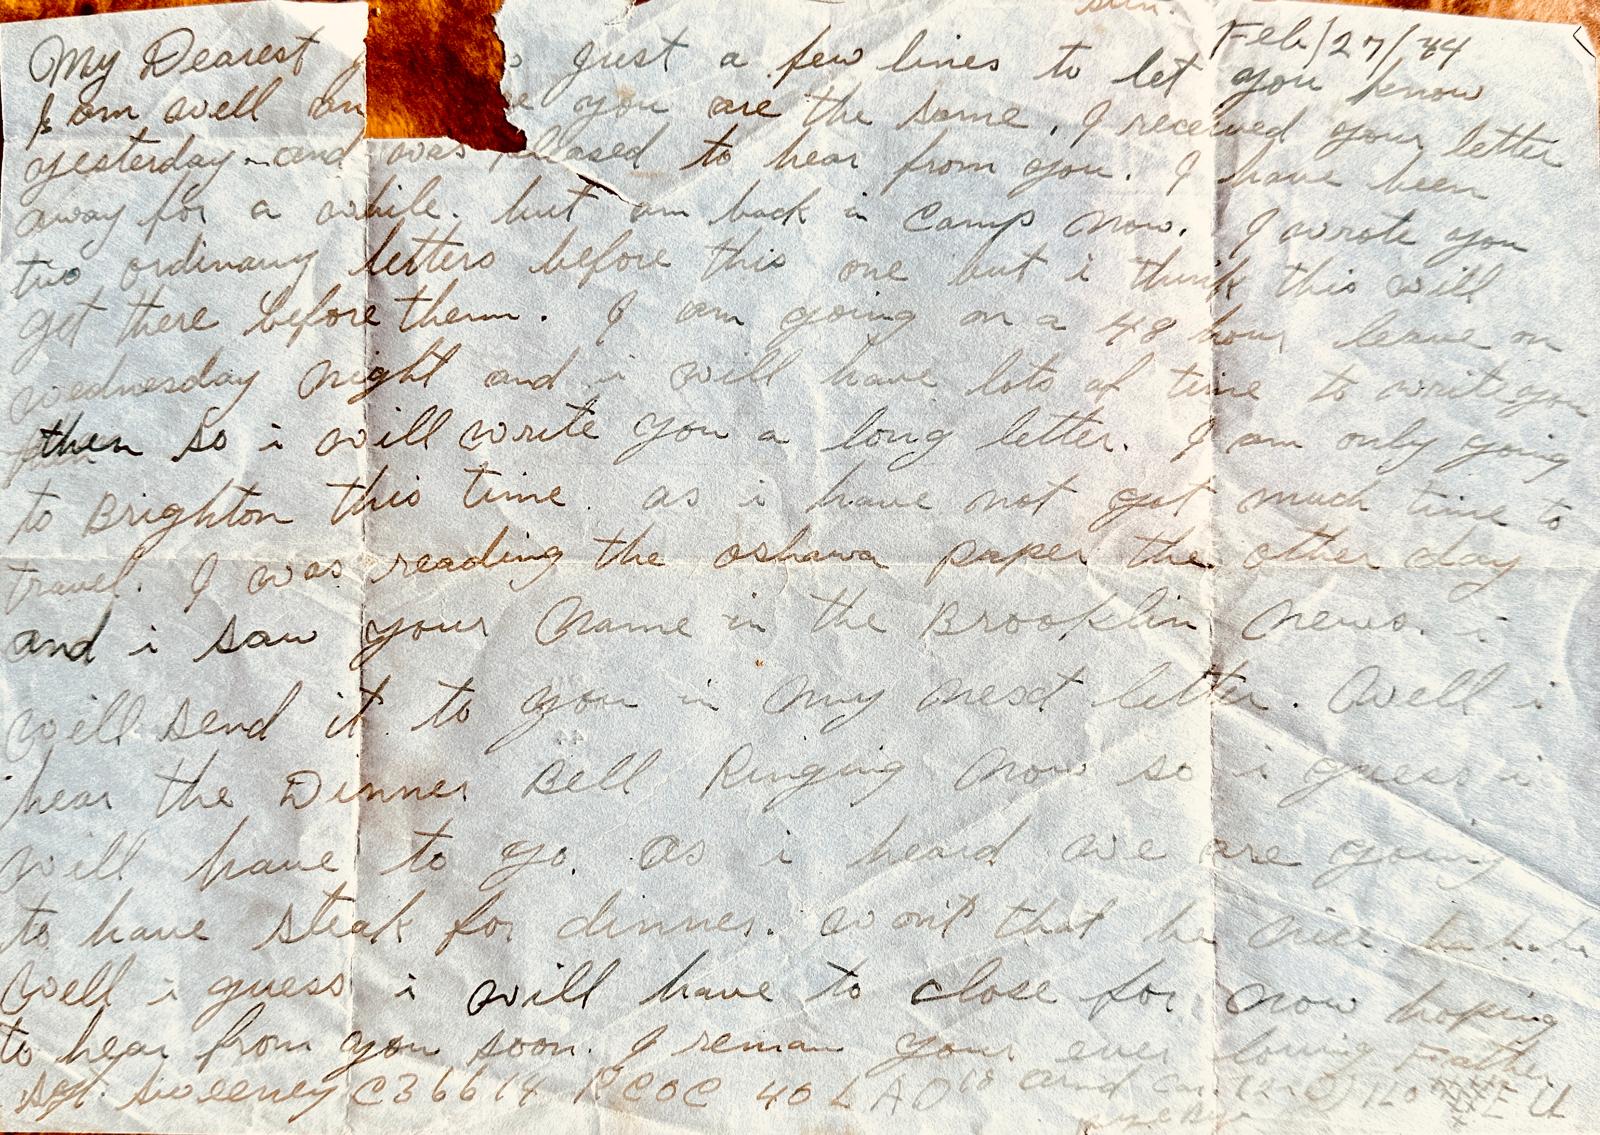 sun.
Feb/27/44
My Dearest just a few lines to let you know
I am well an you are the same. I received your letter
yesterday and was pleased to hear from you. I have been
away for a while. but am back in camp now. I wrote you
two ordinary letters before this one but i think this will
get there before them. I am going on a 48 hour leave on
wednesday night and i will have lots of time to write you
then so i will write you a long letter. I am only going
to Brighton this time. as i have not got much time to
travel. I was reading the oshawa paper the other day
and i saw your name in the Brooklin news. i
will send it to you in my next letter. Well i
hear the Dinner Bell Ringing now so i guess i
will have to go. as i heard we are going
to have steak for dinner. wont that be nice. ha.ha.ha
Well i guess i will have to close for now hoping
to hear from you soon. I remain your ever loving Father
sgt. sweeney C36614 RCOC 40 L A D